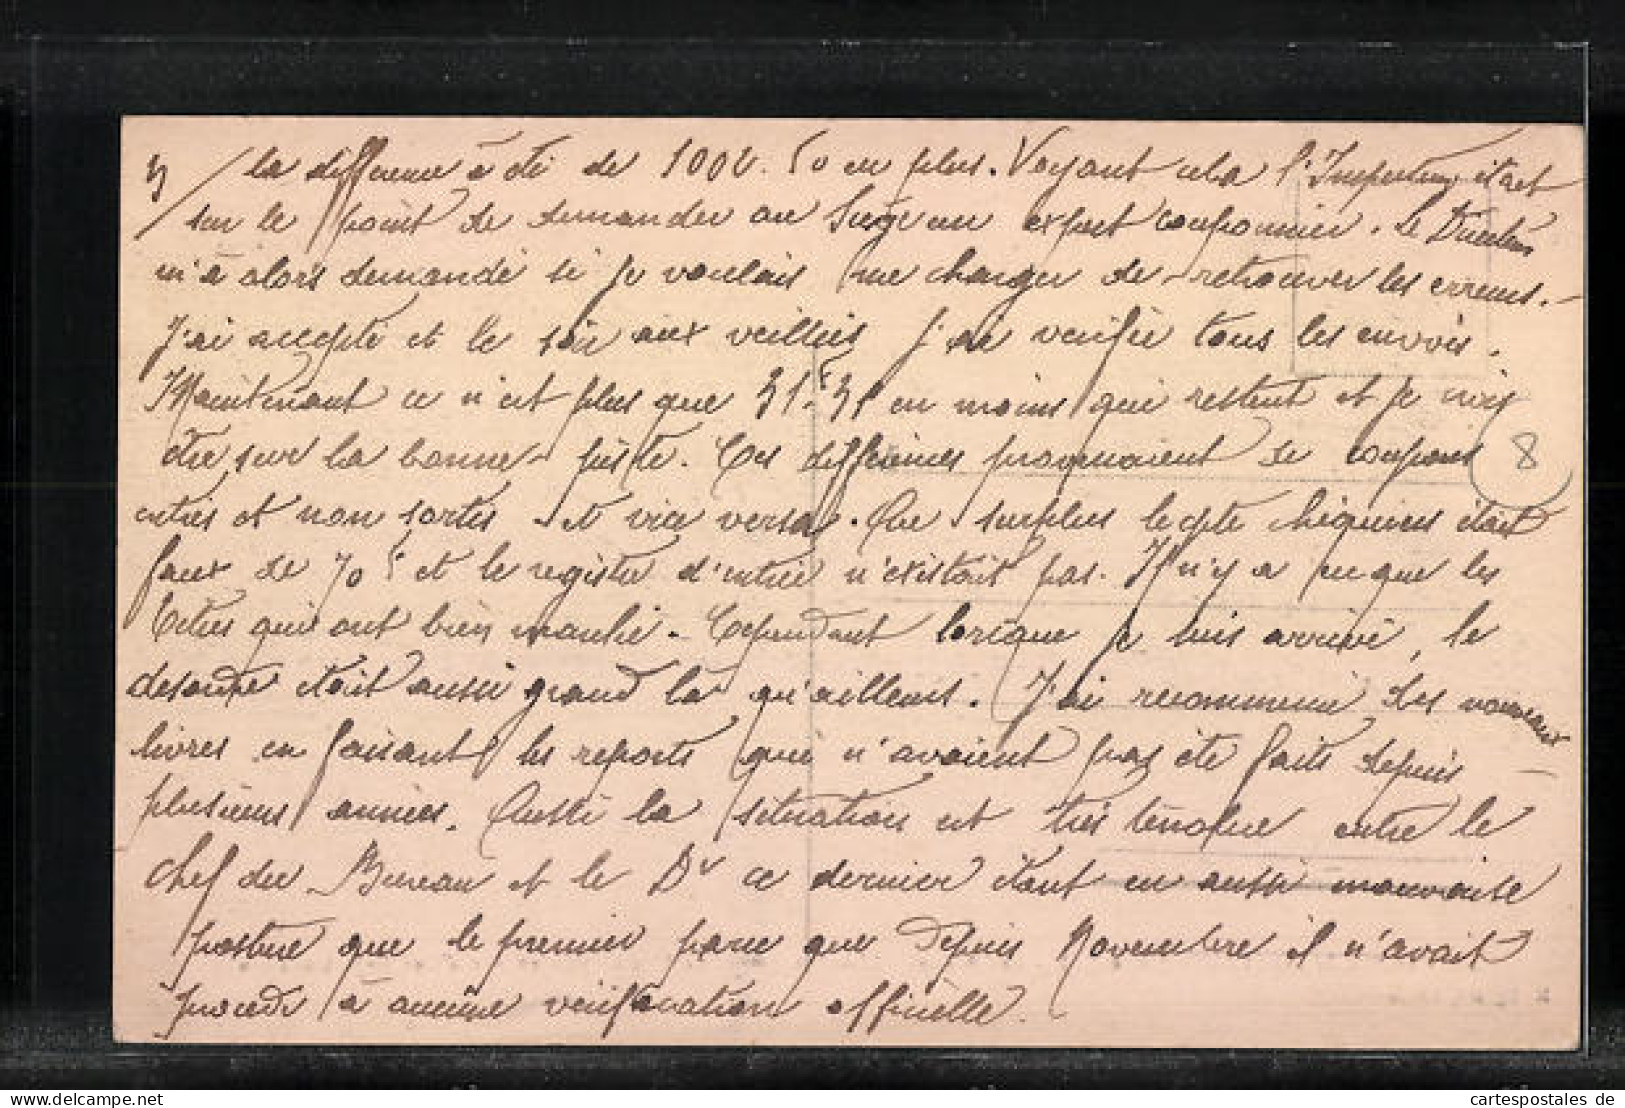 3/ la difference à été de 100 . 50 en plus. Voyant cela l'Inspecteur était
sur le point de demander au Siège un expert couponnier. Le Directeur
m'à alors demandé si je voulais me charger de retrouver les erreurs.
J'ai accepté et le soir aux veillées j'ai verifié tous les envois.
Maintenant ce n'est plus que 31f31 en moins qui restent et je crois
être sur la bonne piste. Ces differences provenaient de coupons
entrés et non sortis et vice versa. Au surplus le cpte chéquiers était
faux de 70f et le registre d'entrée n'existait pas. Il n'y a que les
titres qui ont bien marché. Cependant lorsque je suis arrivé, le
desordre était aussi grand là qu'ailleurs. J'ai recommencé des nouveaux
livres en faisant les reports qui n'avaient pas été faits depuis
plusieurs années. Aussi la situation est très tendue entre le
chef du Bureau et le Dr ce dernier étant en aussi mauvaise
posture que le premier parce que depuis Novembre il n'avait
procédé à aucune verification officielle.
8
www.delcampe.net
cartespostales de